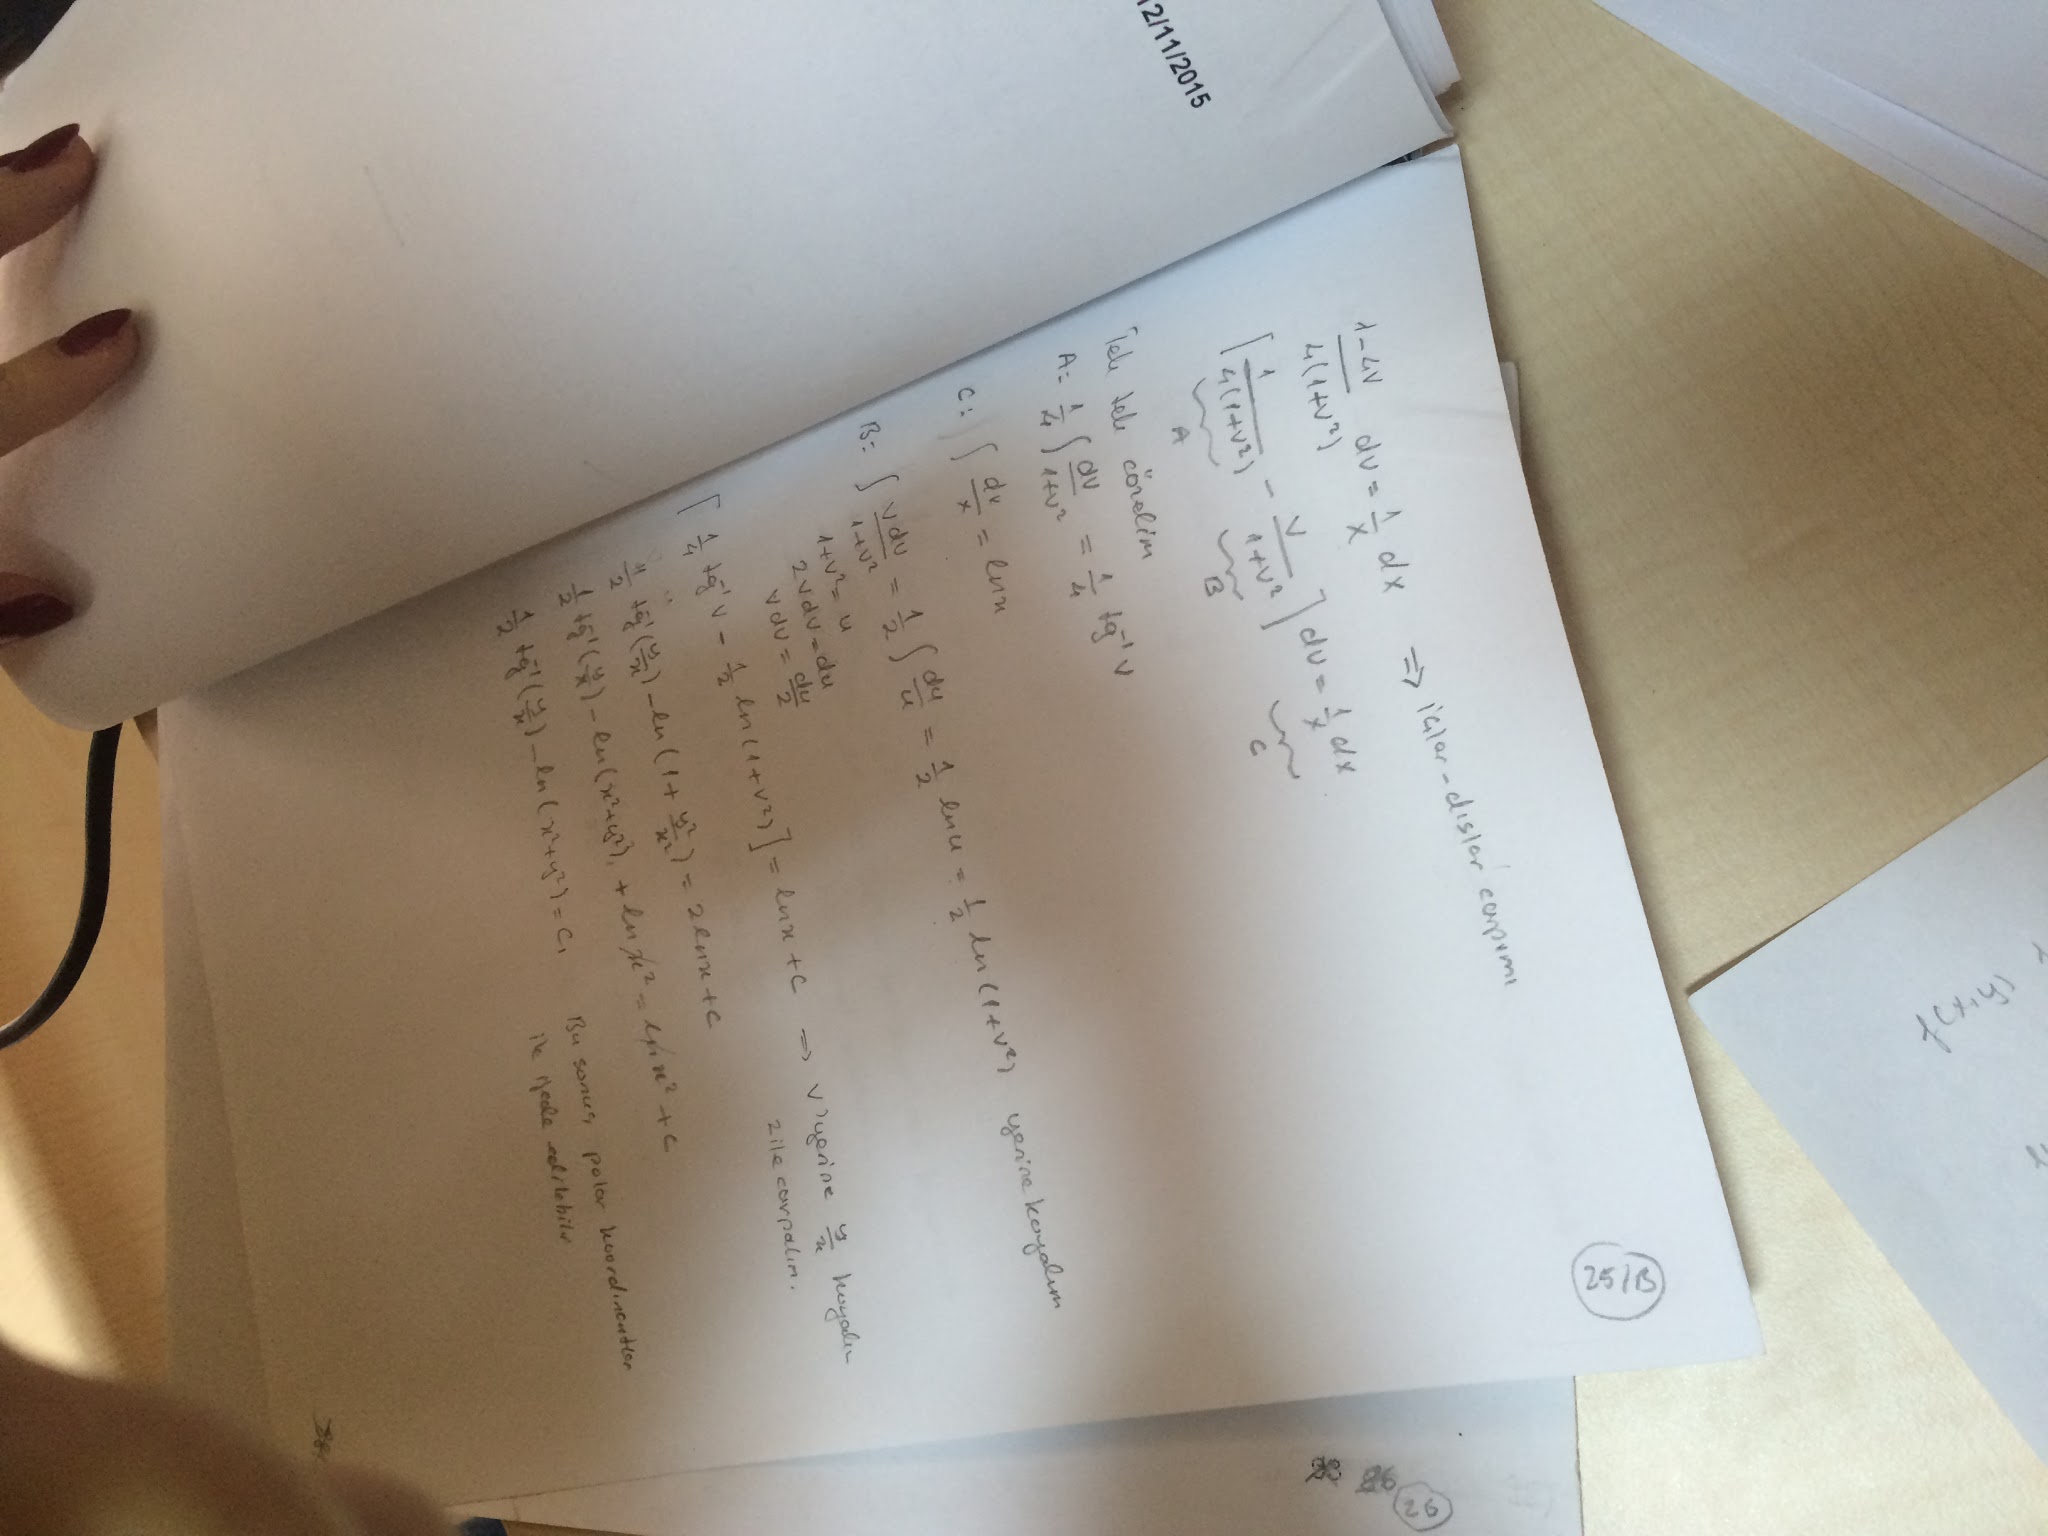 25/B
1-4v/4(1+v²) dv = 1/x dx ⇒ içlar-dışlar çarpımı
[1/4(1+v²) - v/1+v²] dv = 1/x dx
A B C
Tek tek çözelim
A: 1/4 ∫ dv/1+v² = 1/4 tg⁻¹ v
C: ∫ dx/x = lnx
B: ∫ vdv/1+v² = 1/2 ∫ du/u = 1/2 lnu = 1/2 ln(1+v²) yerine koyalım
1+v² = u
2vdv = du
vdv = du/2
[1/4 tg⁻¹ v - 1/2 ln(1+v²)] = lnx + c ⇒ v yerine y/x koyalım
2 ile çarpalım.
1/2 tg⁻¹(y/x) - ln(1+ y²/x²) = 2lnx + c
1/2 tg⁻¹(y/x) - ln(x²+y²) + lnx² = lnx² + c
1/2 tg⁻¹(y/x) - ln(x²+y²) = c₁ Bu sonuç, polar koordinatlar
ile
26
12/11/2015